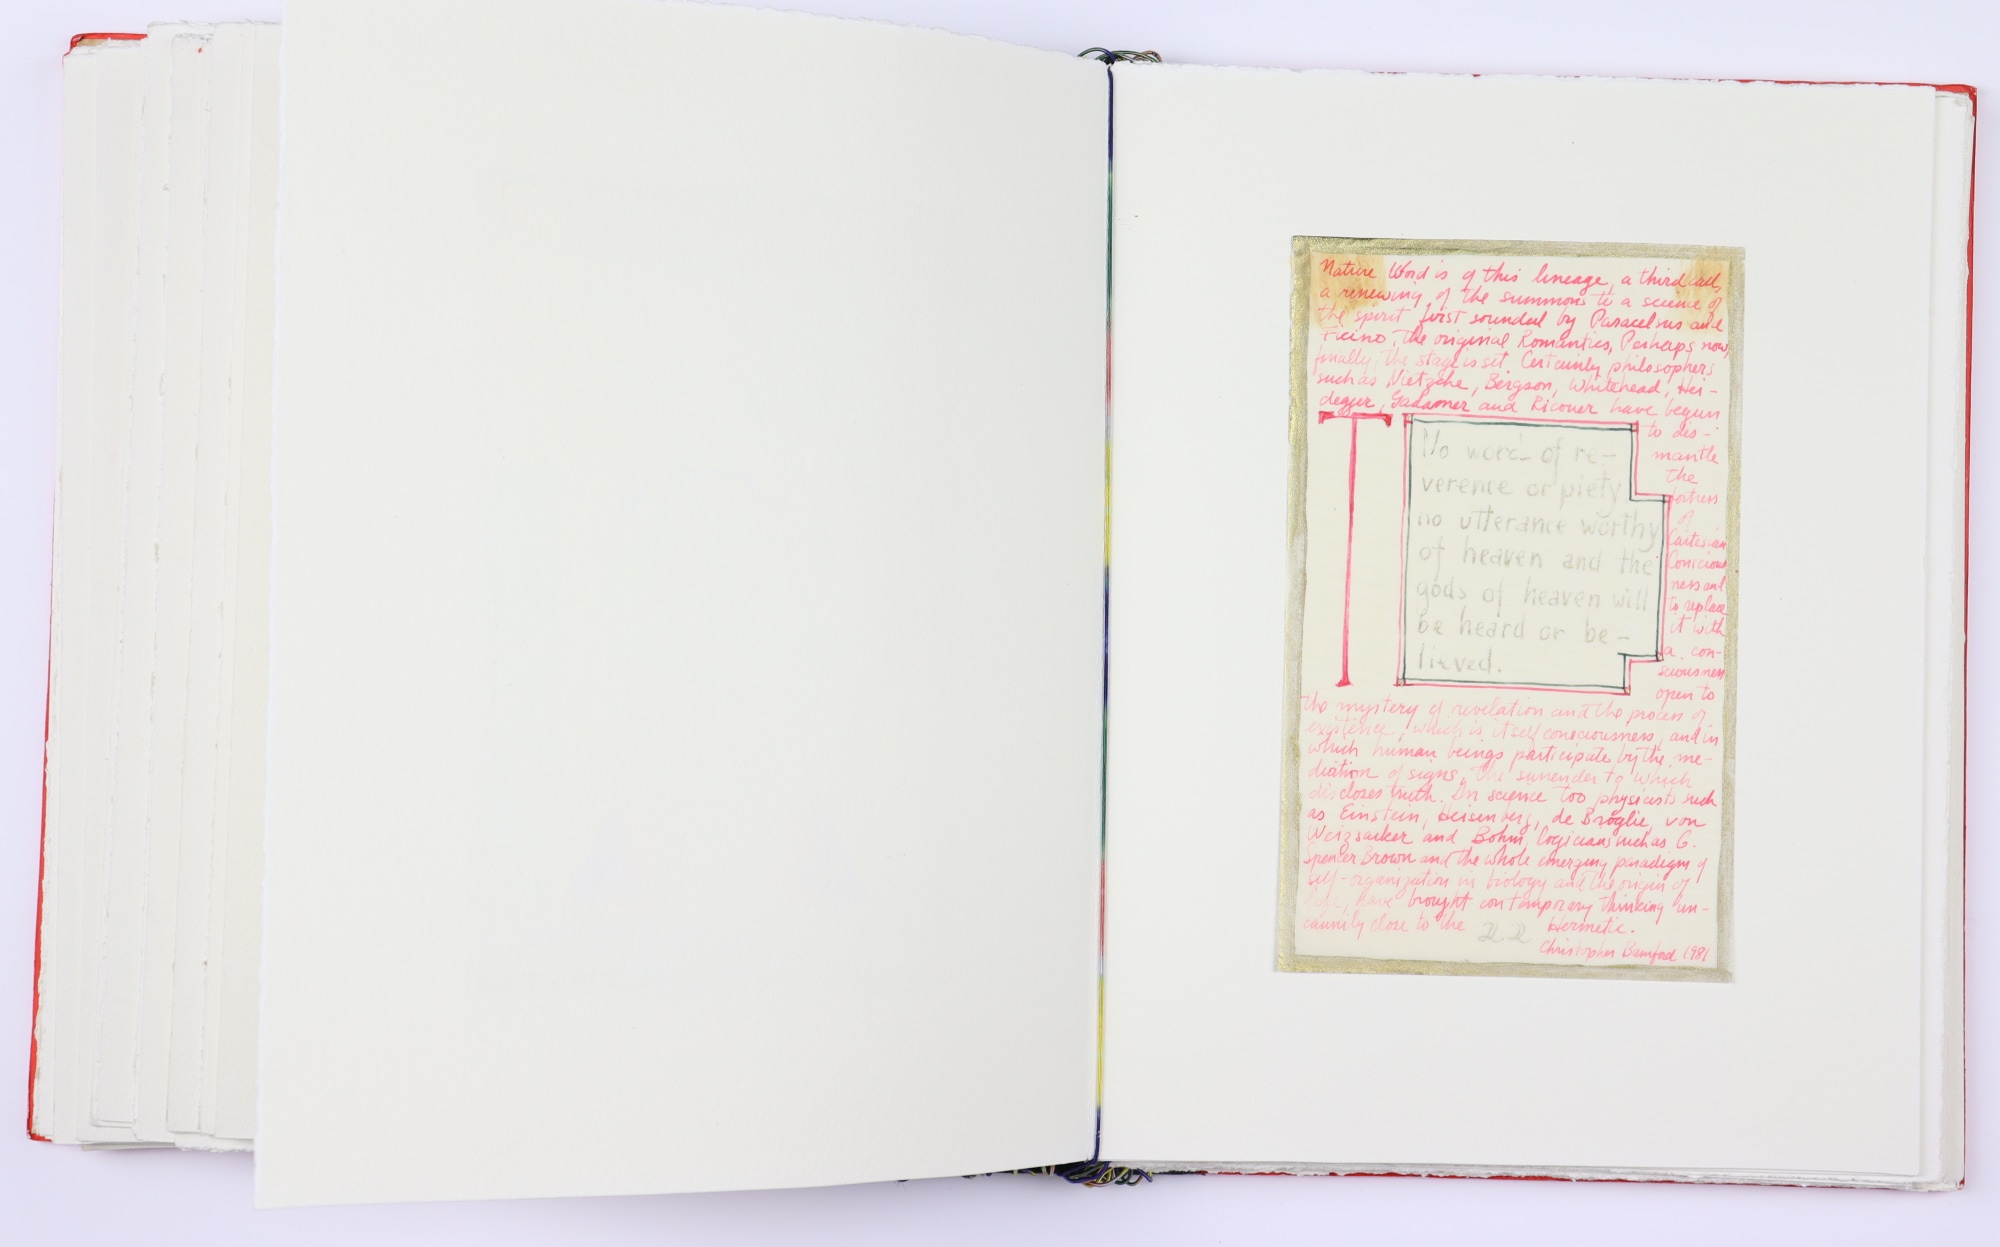 Nature Word is of this lineage, a third call,
a renewing of the summons to a science of
the spirit first sounded by Paracelsus and
Ficino, the original Romantics, Perhaps now,
finally, the stage is set. Certainly philosophers
such as Nietzche, Bergson, Whitehead, Hei-
degger, Gadamer and Ricouer have begun
to dis-
mantle
the
fortress
of
Cartesian
Conscious
ness and
to replace
it with
a con-
sciousness
open to
T
No word of re-
verence or piety
no utterance worthy
of heaven and the
gods of heaven will
be heard or be-
lieved.
the mystery of revelation and the process of
existence, which is itself consciousness, and in
which human beings participate by the me-
diation of signs, the surrender to which
discloses truth. In science too physicists such
as Einstein, Heisenberg, de Broglie, von
Weizsacker and Bohm, logicians such as G.
Spencer Brown and the whole emerging paradigm of
self-organization in biology and the origin of
life, have brought contemporary thinking un-
cannily close to the Hermetic.
Christopher Bamford 1981